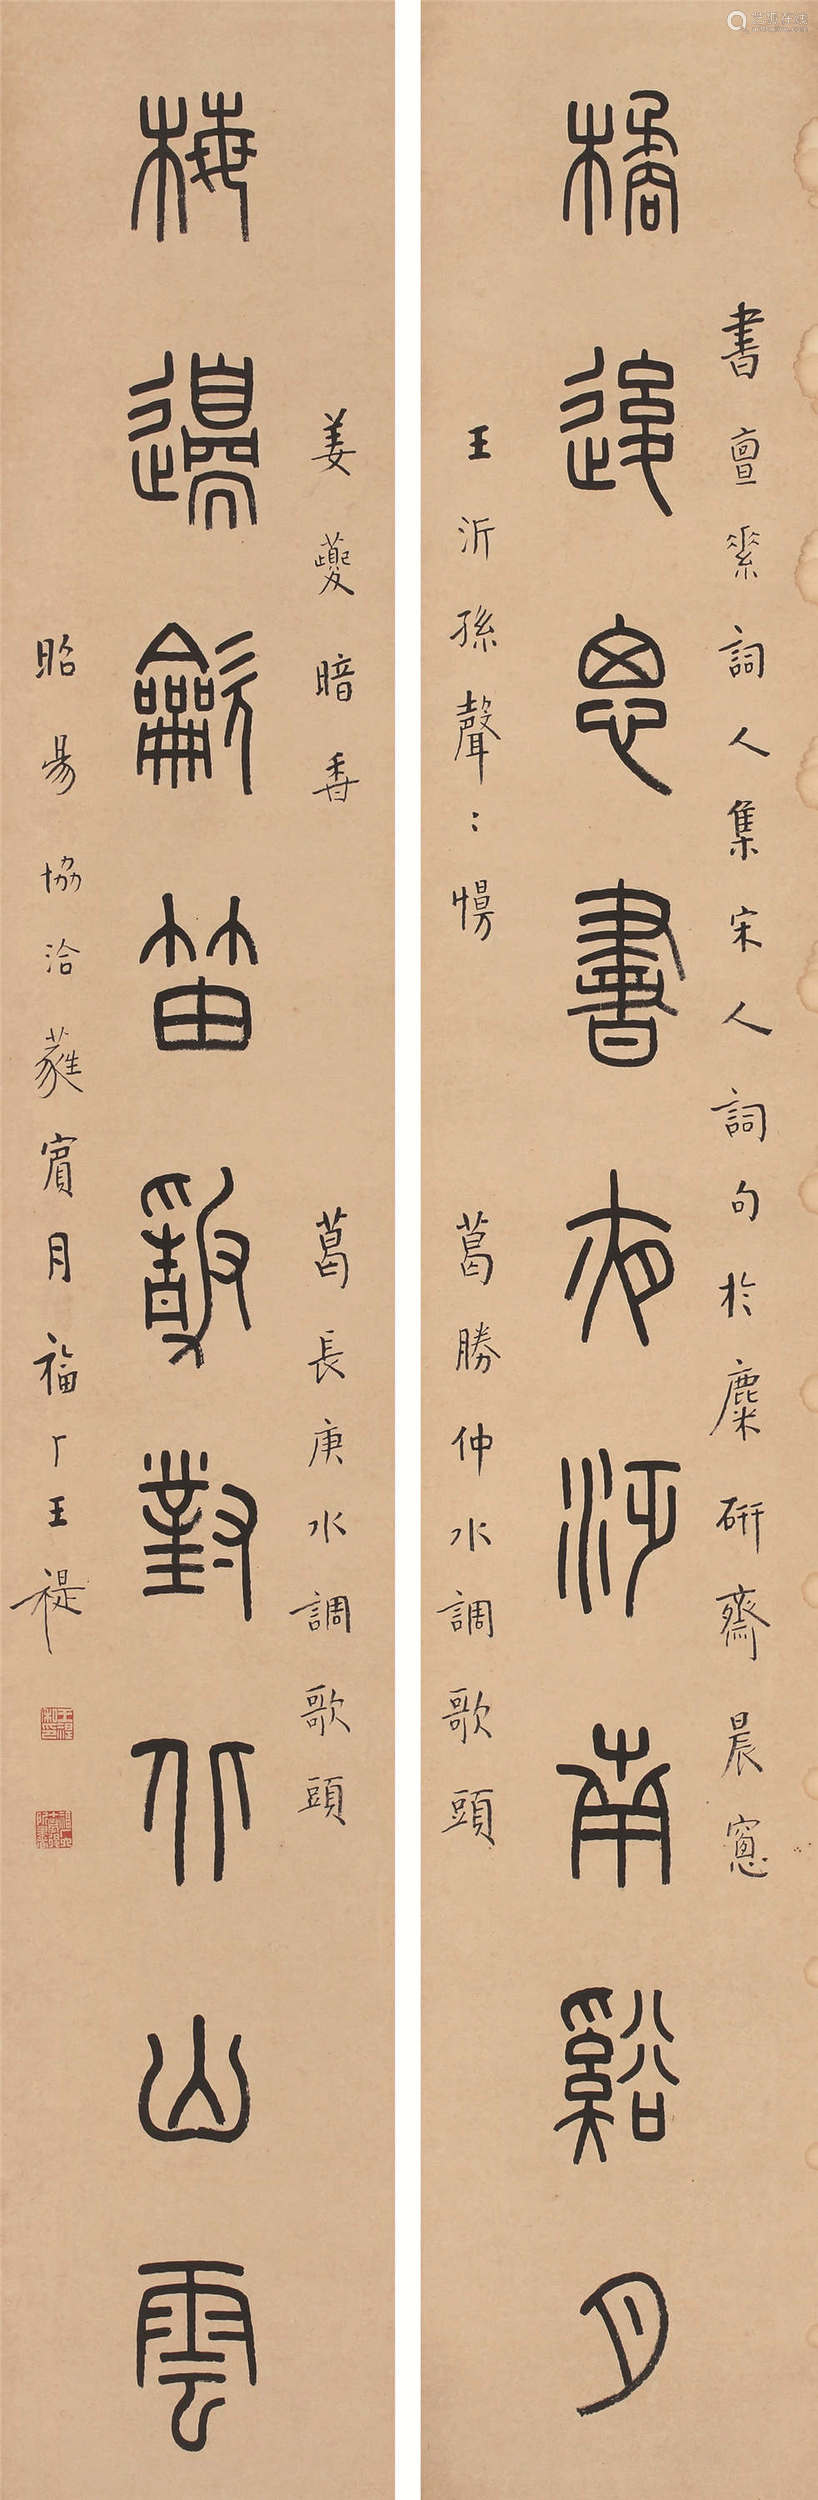 橘後思書夜泛南谿月
書亶素詞人集宋人詞句於麋研齋晨窻
王沂孫聲：慢
葛勝仲水調歌頭
梅邊龡笛敢對北山雲
姜夔暗香
葛長庚水調歌頭
昭昜協洽蕤賓月福厂王禔